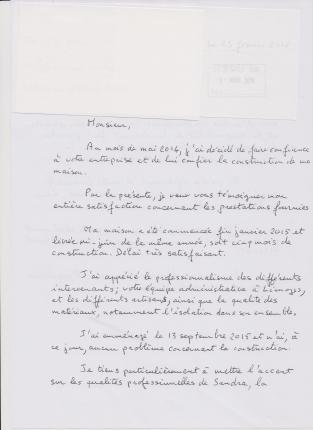 Le 25 février 2016
Monsieur,
Au mois de mai 2014, j'ai décidé de faire confiance
à votre entreprise et de lui confier la construction de ma
maison.
Par la présente, je veux vous témoigner mon
entière satisfaction concernant les prestations fournies
Ma maison a été commencée fin janvier 2015 et
livrée mi-juin de la même année, soit cinq mois de
construction. Délai très satisfaisant.
J'ai apprécié le professionalisme des différents
intervenants; votre équipe administrative à Limoges,
et les différents artisans, ainsi que la qualité des
matériaux, notamment l'isolation dans son ensemble.
J'ai aménagé le 13 septembre 2015 et n'ai, à
ce jour, aucun problème concernant la construction.
Je tiens particulièrement à mettre l'accent
sur les qualités professionnelles de Sandra, la